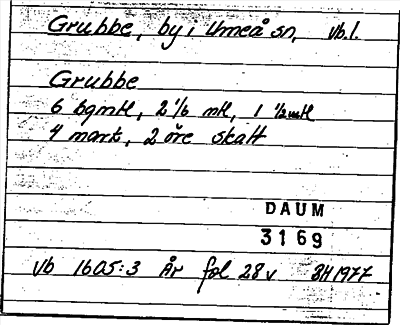 Grubbe, by i Umeå sn, vb.l.
Grubbe
6 bgmtl, 2 1/6 mtl, 1 1/2 mtl
4 mark, 2 öre skatt
DAUM
3169
Vb 1605:3 År fol 28v BH 1977